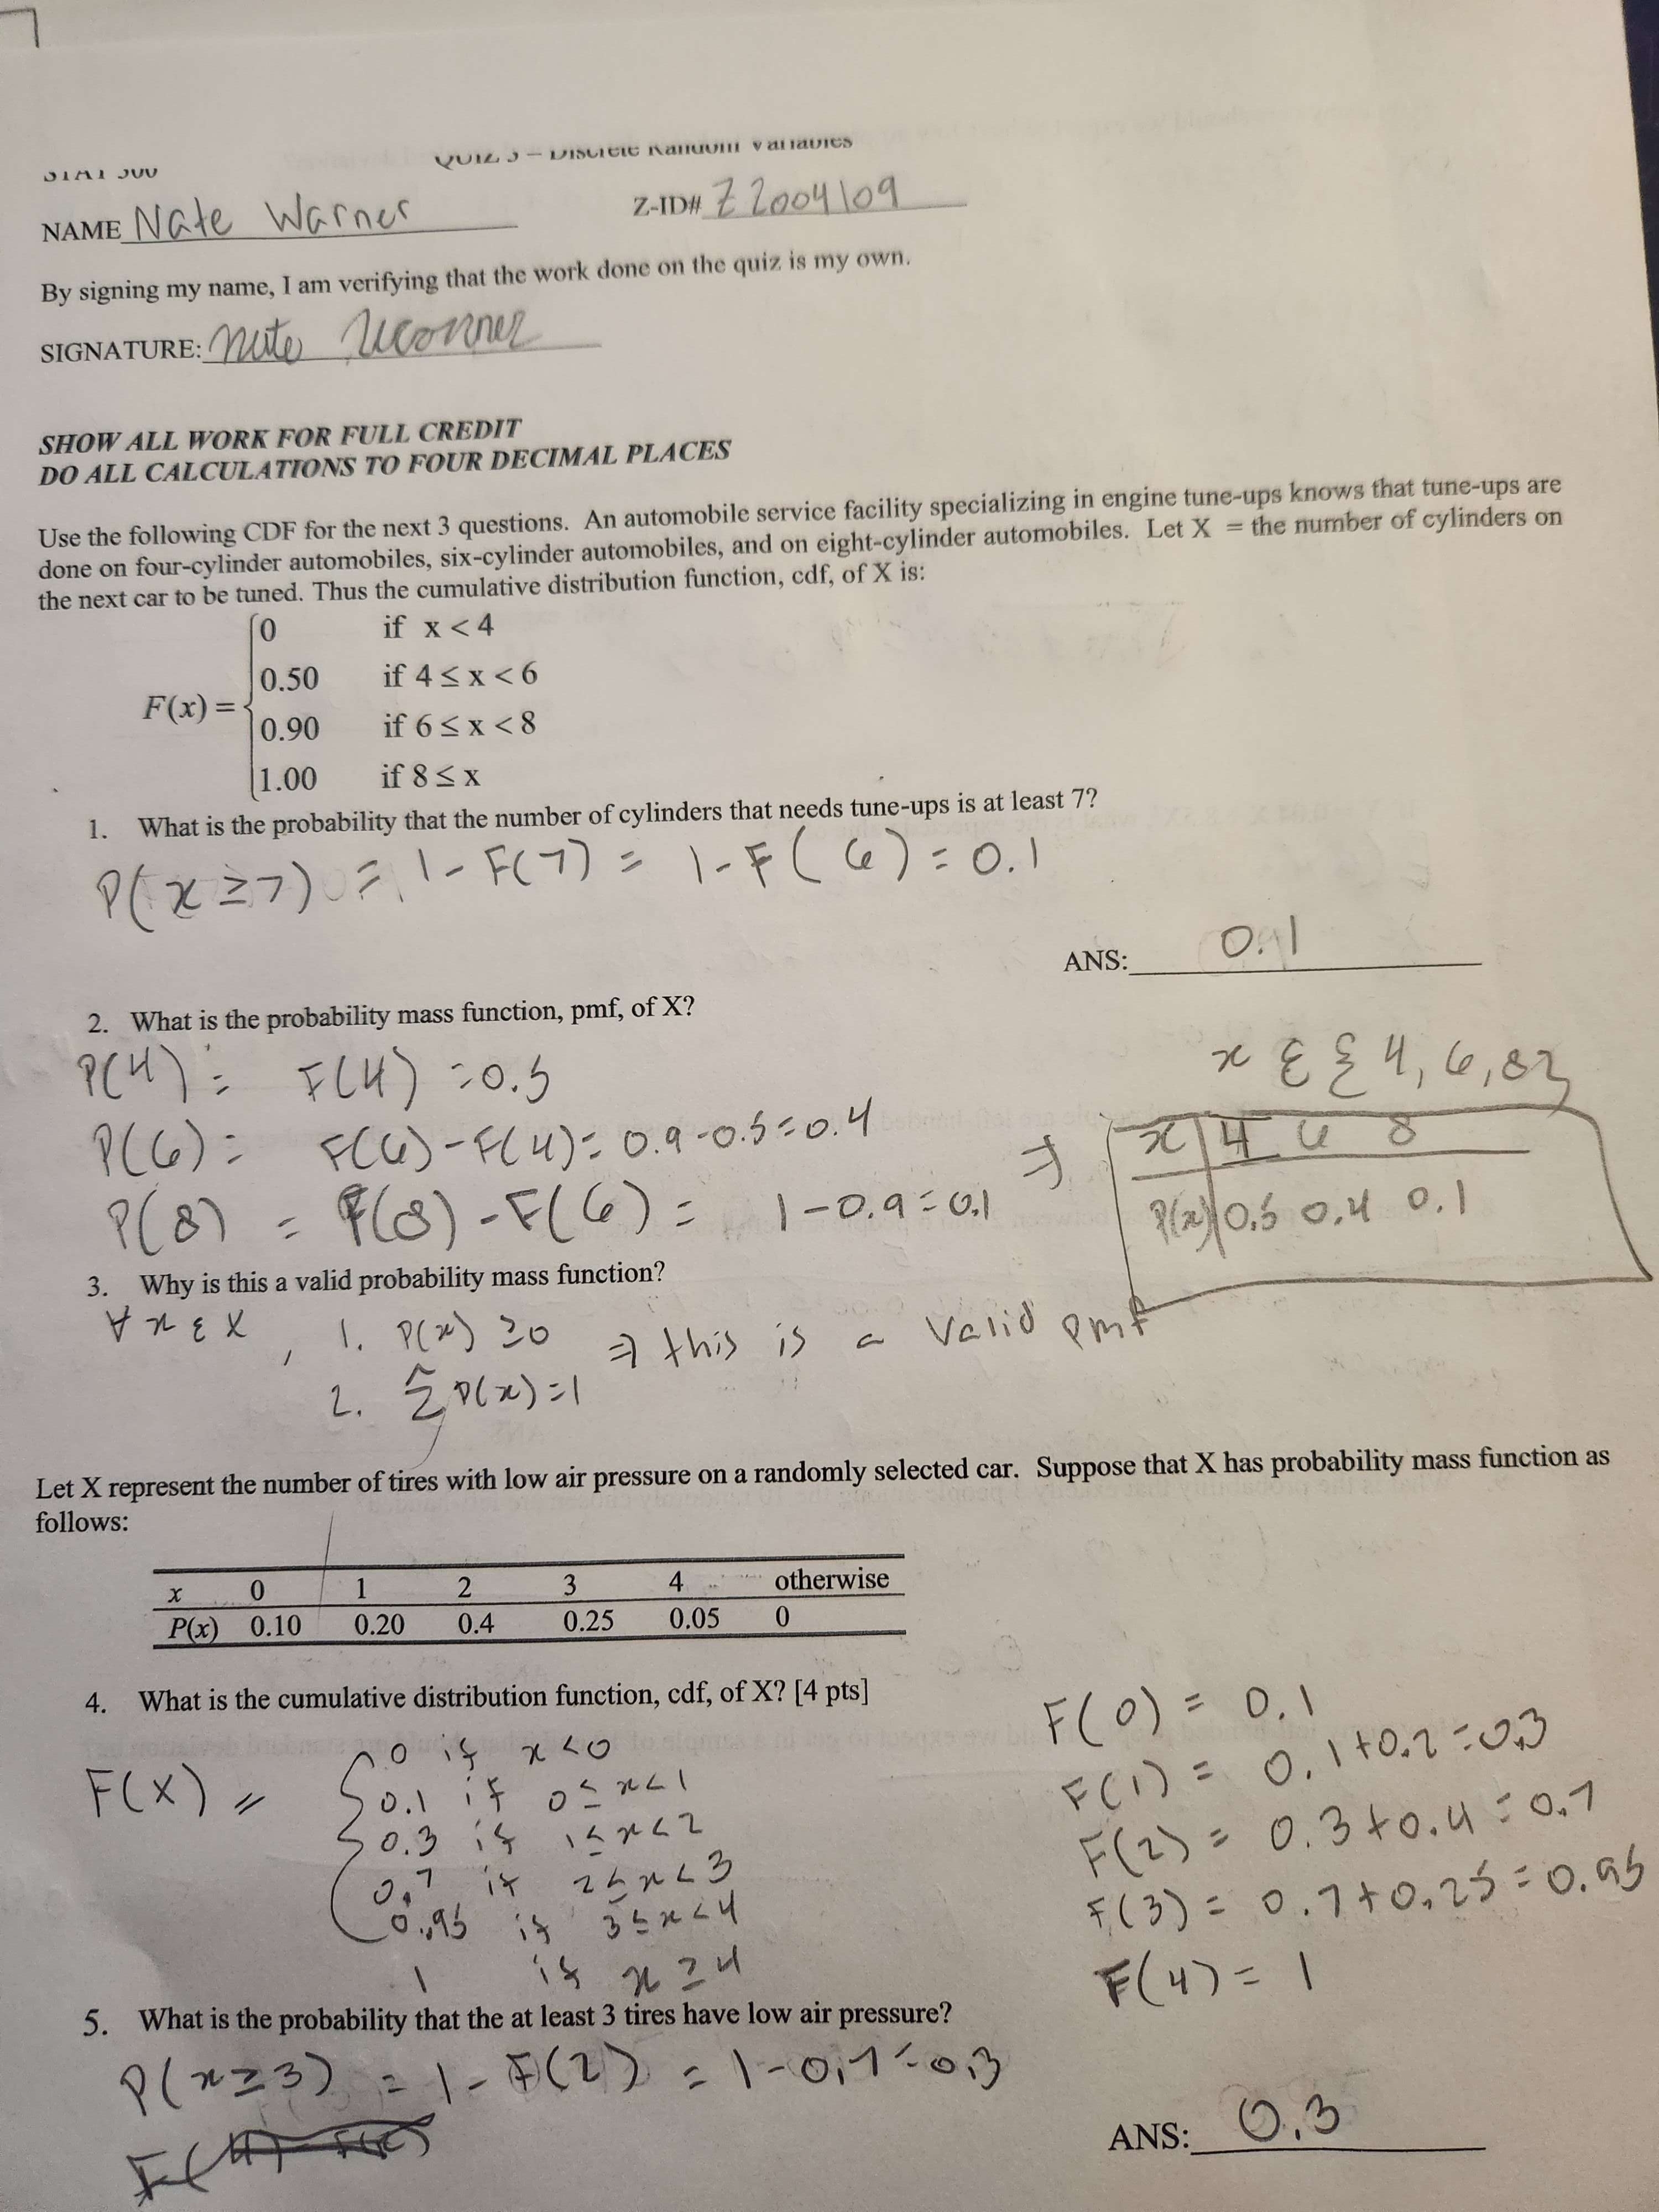 STAT 300
QUIZ 3 – Discrete Random Variables
NAME Nate Warner Z-ID# Z2004109
By signing my name, I am verifying that the work done on the quiz is my own.
SIGNATURE: Nate Warner
SHOW ALL WORK FOR FULL CREDIT
DO ALL CALCULATIONS TO FOUR DECIMAL PLACES
Use the following CDF for the next 3 questions. An automobile service facility specializing in engine tune-ups knows that tune-ups are
done on four-cylinder automobiles, six-cylinder automobiles, and on eight-cylinder automobiles. Let X = the number of cylinders on
the next car to be tuned. Thus the cumulative distribution function, cdf, of X is:
0 if x < 4
0.50 if 4 ≤ x < 6
F(x) =
0.90 if 6 ≤ x < 8
1.00 if 8 ≤ x
1. What is the probability that the number of cylinders that needs tune-ups is at least 7?
P(x ≥ 7) = 1 - F(7) = 1 - F(6) = 0.1
ANS: 0.1
2. What is the probability mass function, pmf, of X?
x ε {4, 6, 8}
P(4) = F(4) = 0.5
P(6) = F(6) - F(4) = 0.9 - 0.5 = 0.4 ⇒
x 4 6 8
P(8) = F(8) - F(6) = 1 - 0.9 = 0.1
P(x) 0.5 0.4 0.1
3. Why is this a valid probability mass function?
∀ x ε X, 1. P(x) ≥ 0 ⇒ this is a valid pmf
2. Σ P(x) = 1
Let X represent the number of tires with low air pressure on a randomly selected car. Suppose that X has probability mass function as
follows:
x 0 1 2 3 4 otherwise
P(x) 0.10 0.20 0.4 0.25 0.05 0
4. What is the cumulative distribution function, cdf, of X? [4 pts]
F(X) =
0 if x < 0
0.1 if 0 ≤ x < 1
0.3 if 1 ≤ x < 2
0.7 if 2 ≤ x < 3
0.95 if 3 ≤ x < 4
1 if x ≥ 4
F(0) = 0.1
F(1) = 0.1 + 0.2 = 0.3
F(2) = 0.3 + 0.4 = 0.7
F(3) = 0.7 + 0.25 = 0.95
F(4) = 1
5. What is the probability that the at least 3 tires have low air pressure?
P(x ≥ 3) = 1 - F(2) = 1 - 0.7 = 0.3
ANS: 0.3